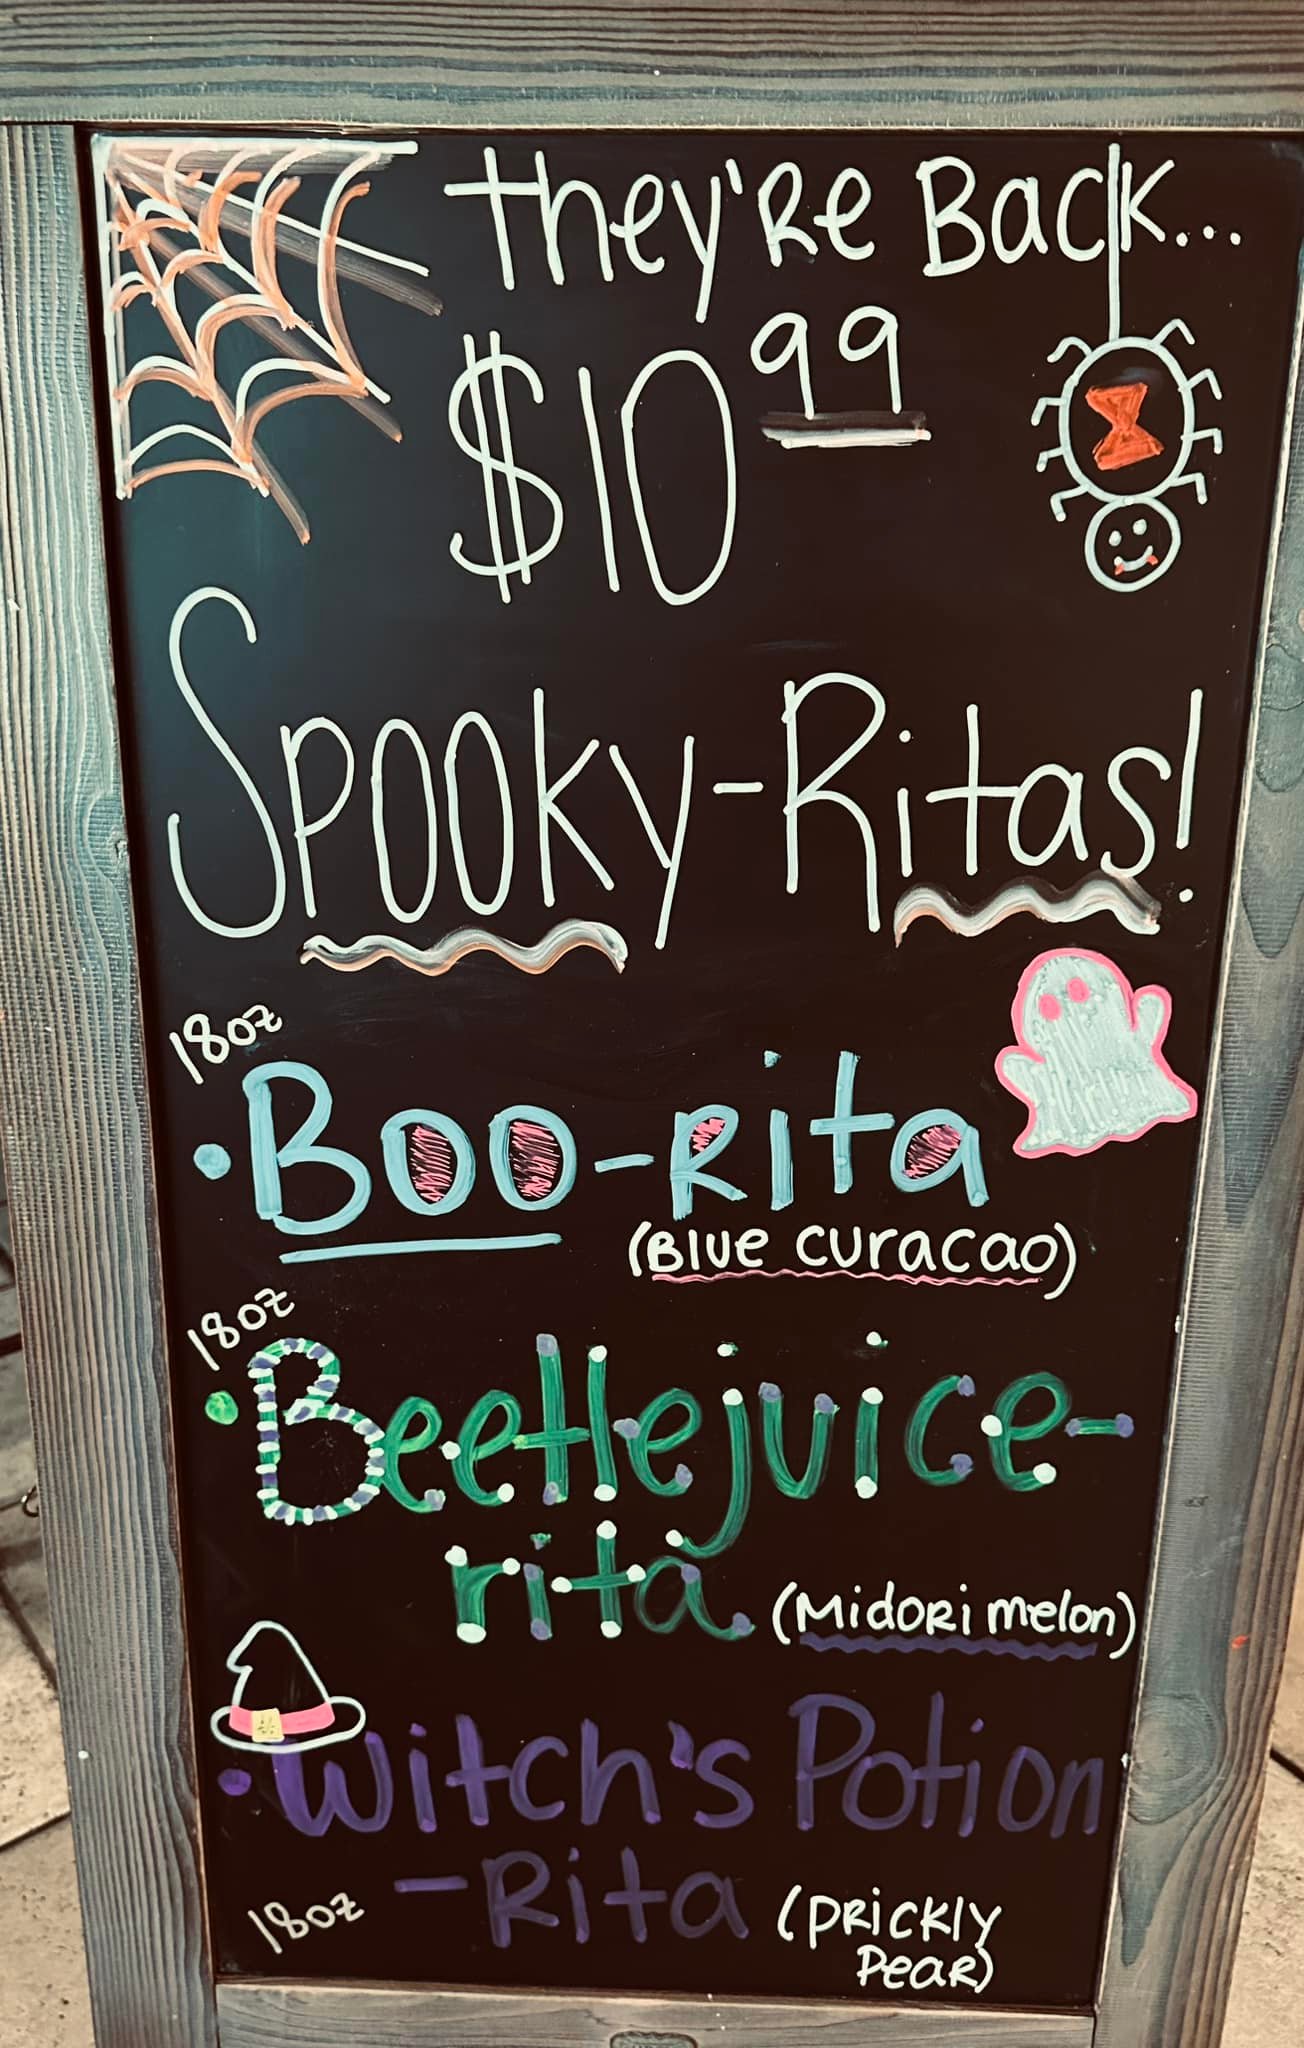 They're Back...
$10 99
Spooky-Ritas!
18oz
• Boo-Rita
(Blue Curacao)
18oz
• Beetlejuice-
rita (Midori melon)
• Witch's Potion
-Rita (Prickly
18oz
Pear)